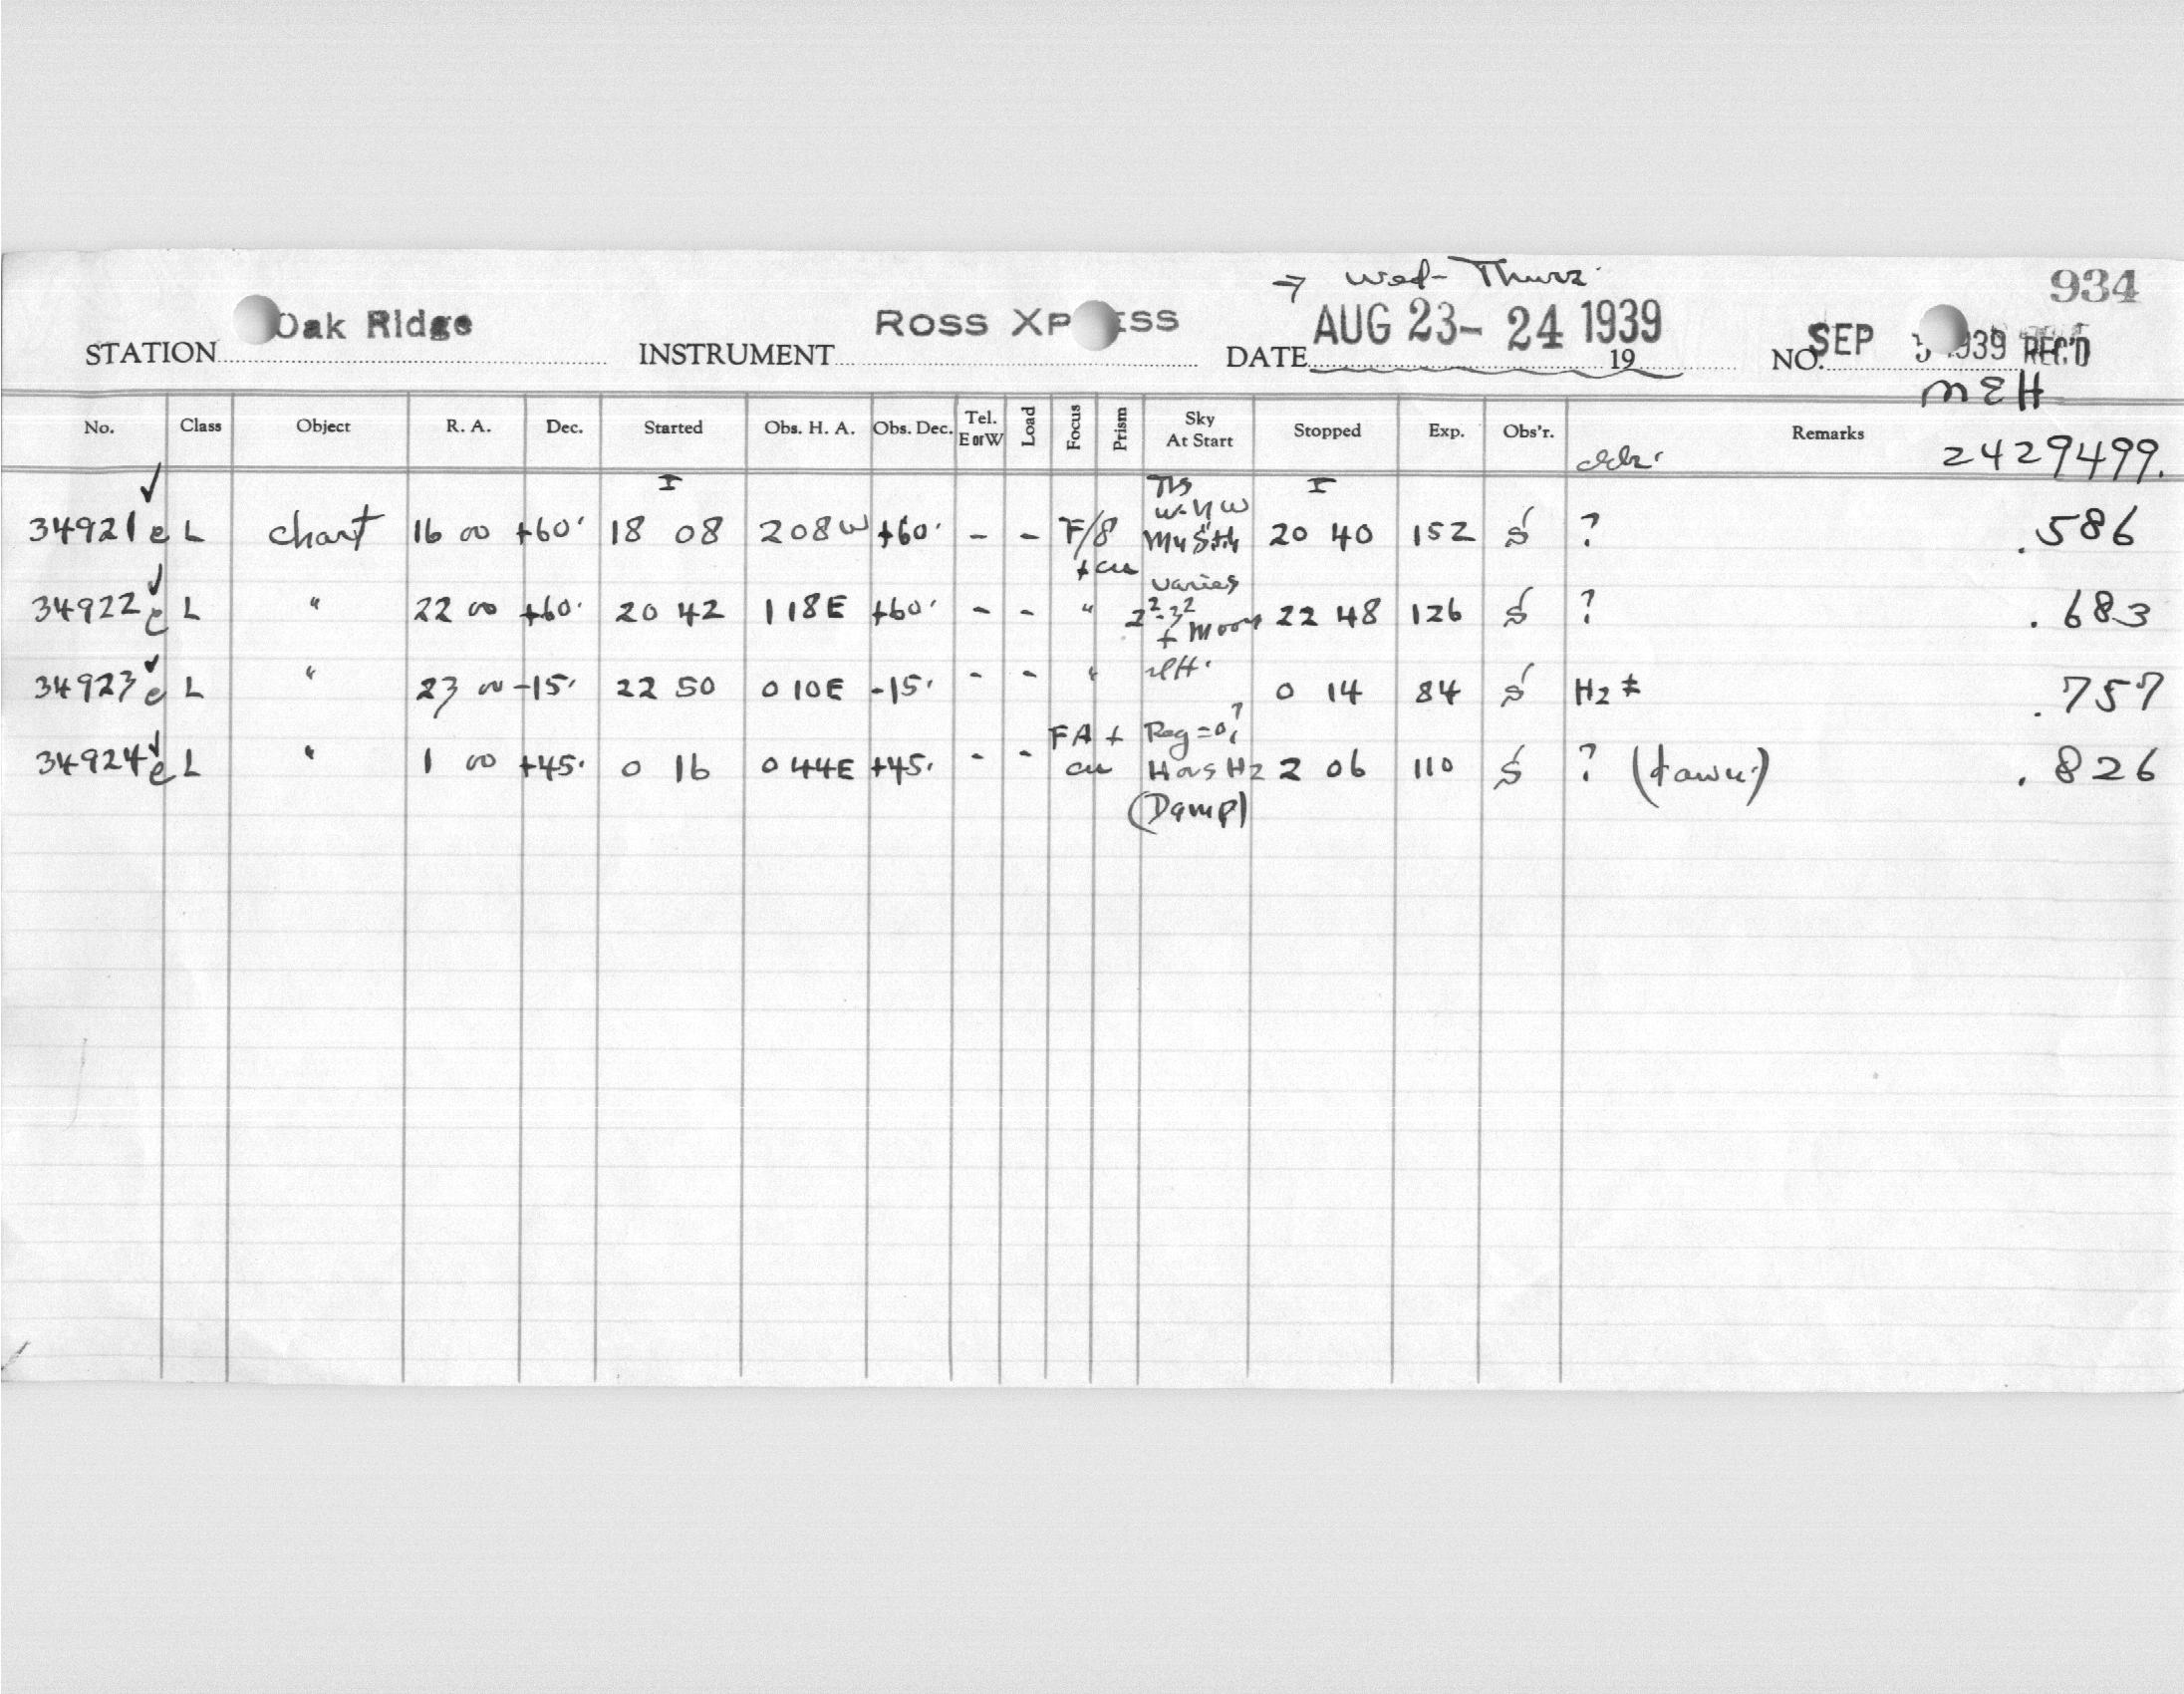 ⇒ Wed- Thurs.
934
STATION Oak Ridge INSTRUMENT ROSS XP ESS DATE AUG 23- 24 1939 19 NO. SEP 5 1939 REC'D
MEH
No. Class Object R. A. Dec. Started Obs. H. A. Obs. Dec. Tel. E or W Load Focus Prism Sky At Start Stopped Exp. Obs'r. Remarks 2429499.
I I
34921 e L chart 16 00 +60· 18 08 2 08 W +60· - - F/8 + cu W-NW 20 40 152 S ? .586
34922 e L " 22 00 +60· 20 42 1 18 E +60· - - " varies 2²-3² + Moon 22 48 126 S ? .683
34923 e L " 23 00 -15· 22 50 0 10 E -15· - - " 0 14 84 S H2 ± .757
34924 e L " 1 00 +45· 0 16 0 44 E +45· - - FA + cu Reg = 0? H2 2 06 110 S ? (dawn·) .826
(Damp)